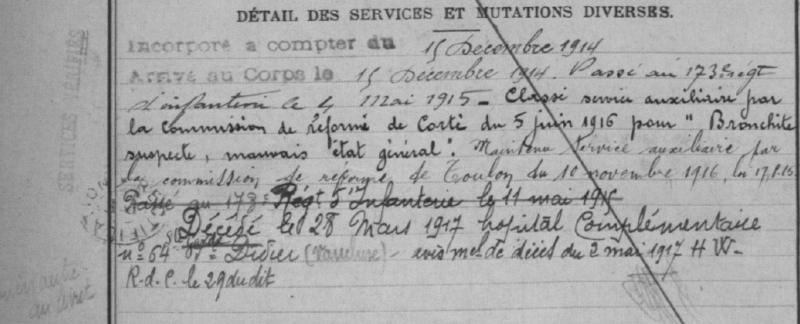 DÉTAIL DES SERVICES ET MUTATIONS DIVERSES.
Incorporé à compter du 15 Décembre 1914
Arrivé au Corps le 15 Décembre 1914. Passé au 173e régt
d'infanterie le 4 mai 1915 - Classé service auxiliaire par
la Commission de réforme de Corté du 5 juin 1916 pour "Bronchite
suspecte, mauvais état général". Maintenu Service auxiliaire par
la commission de réforme de Toulon du 10 novembre 1916,
Passé au 178e Régt d'Infanterie le 11 mai
Décédé le 28 Mars 1917 hopital Complémentaire
n° 64 St Didier (Vaucluse) - avis mel de décès du 2 mai 1917 H W-
R.d.C. le 29 du dit
SERVICES